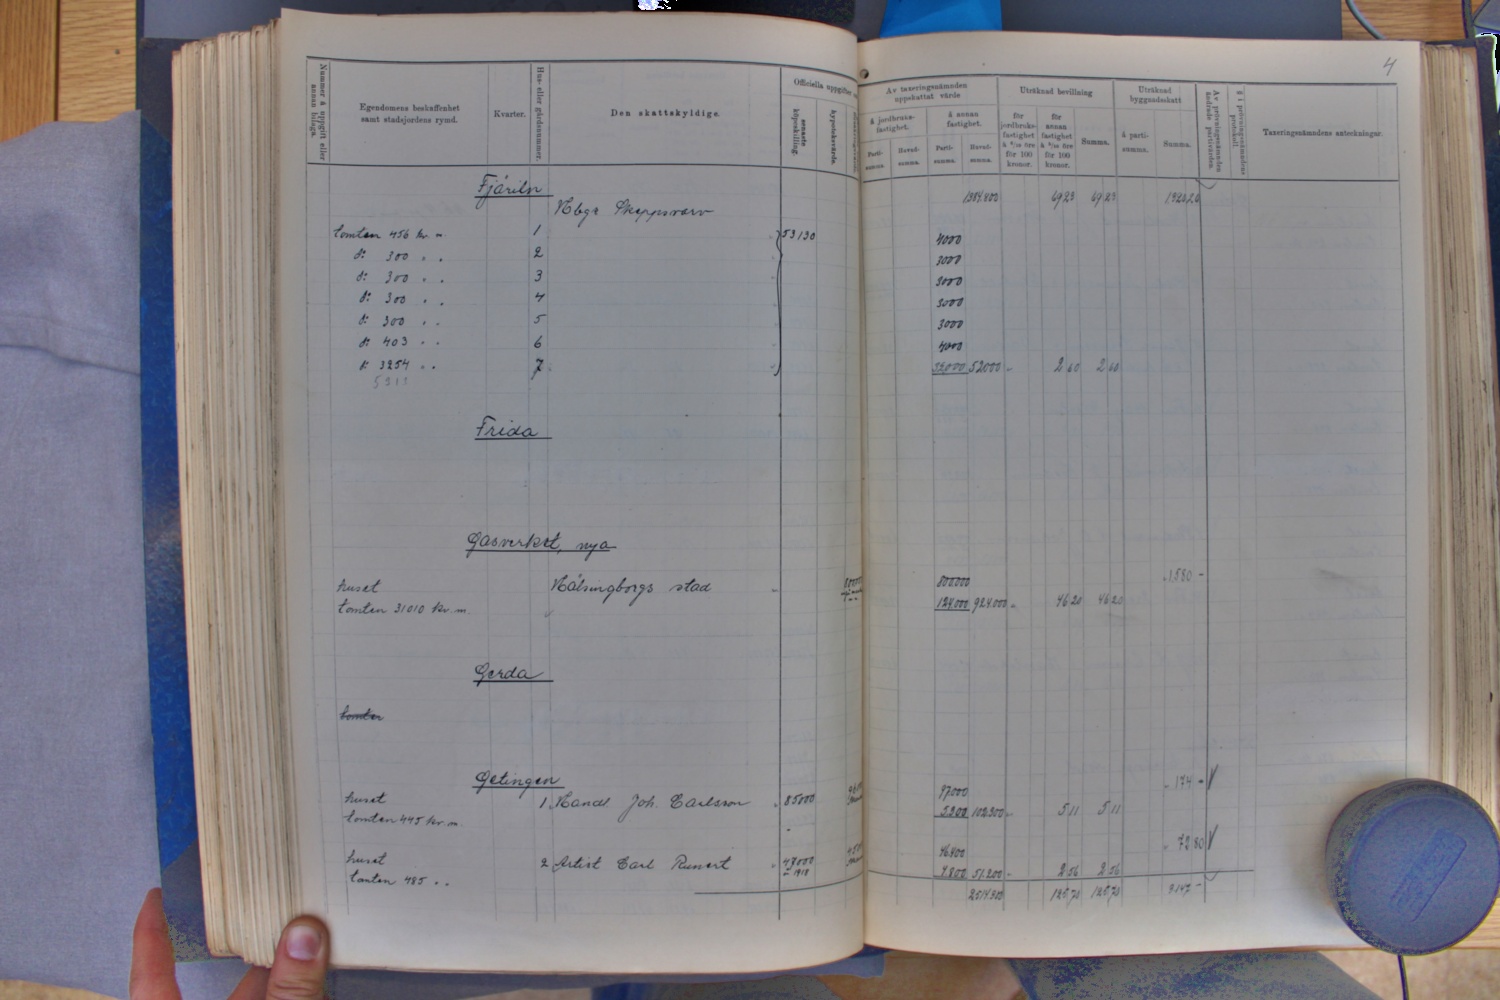 4
Nummer å uppgift eller annan bilaga.
Egendomens beskaffenhet samt stadsjordens rymd.
Kvarter.
Hus- eller gårdsnummer.
Den skattskyldige.
Officiella uppgifter
senaste köpeskilling.
hypoteksvärde.
Av taxeringsnämnden uppskattat värde
å jordbruksfastighet.
å annan fastighet.
Partisumma.
Huvudsumma.
Partisumma.
Huvudsumma.
Uträknad bevillning
för jordbruksfastighet
för annan fastighet
för 100 kronor.
Summa.
Uträknad byggnadsskatt
å partisumma.
Summa.
Av prövningsnämnden ändrade partivärden.
§ i prövningsnämndens protokoll.
Taxeringsnämndens anteckningar.
Fjäriln 69 23 69 23
Hbgs Skeppsvarv
tomten 456 kv. m. 1 53130 4000
d:o 300 " " 2 3000
d:o 300 " " 3 3000
d:o 300 " " 4 3000
d:o 300 " " 5 3000
d:o 403 " " 6 4000
d:o 3254 " " 7 52000 - 2 60 2 60
5313
Frida
Gasverket, nya
huset Hälsingborgs stad 800.000 1580 -
tomten 31010 kv. m. 124.000 924.000 - 46 20 46 20
Gerda
tomten
Getingen
huset 1 Handl. Joh. Carlsson 85000 97000 174 -
tomten 445 kv. m. 5300 102300 - 5 11 5 11
huset 2 Artist Carl Runert 47000 1918 46400 72 80
tomten 485 " " 4.800 51.200 - 2 56 2 56
2514300 125 70 125 70